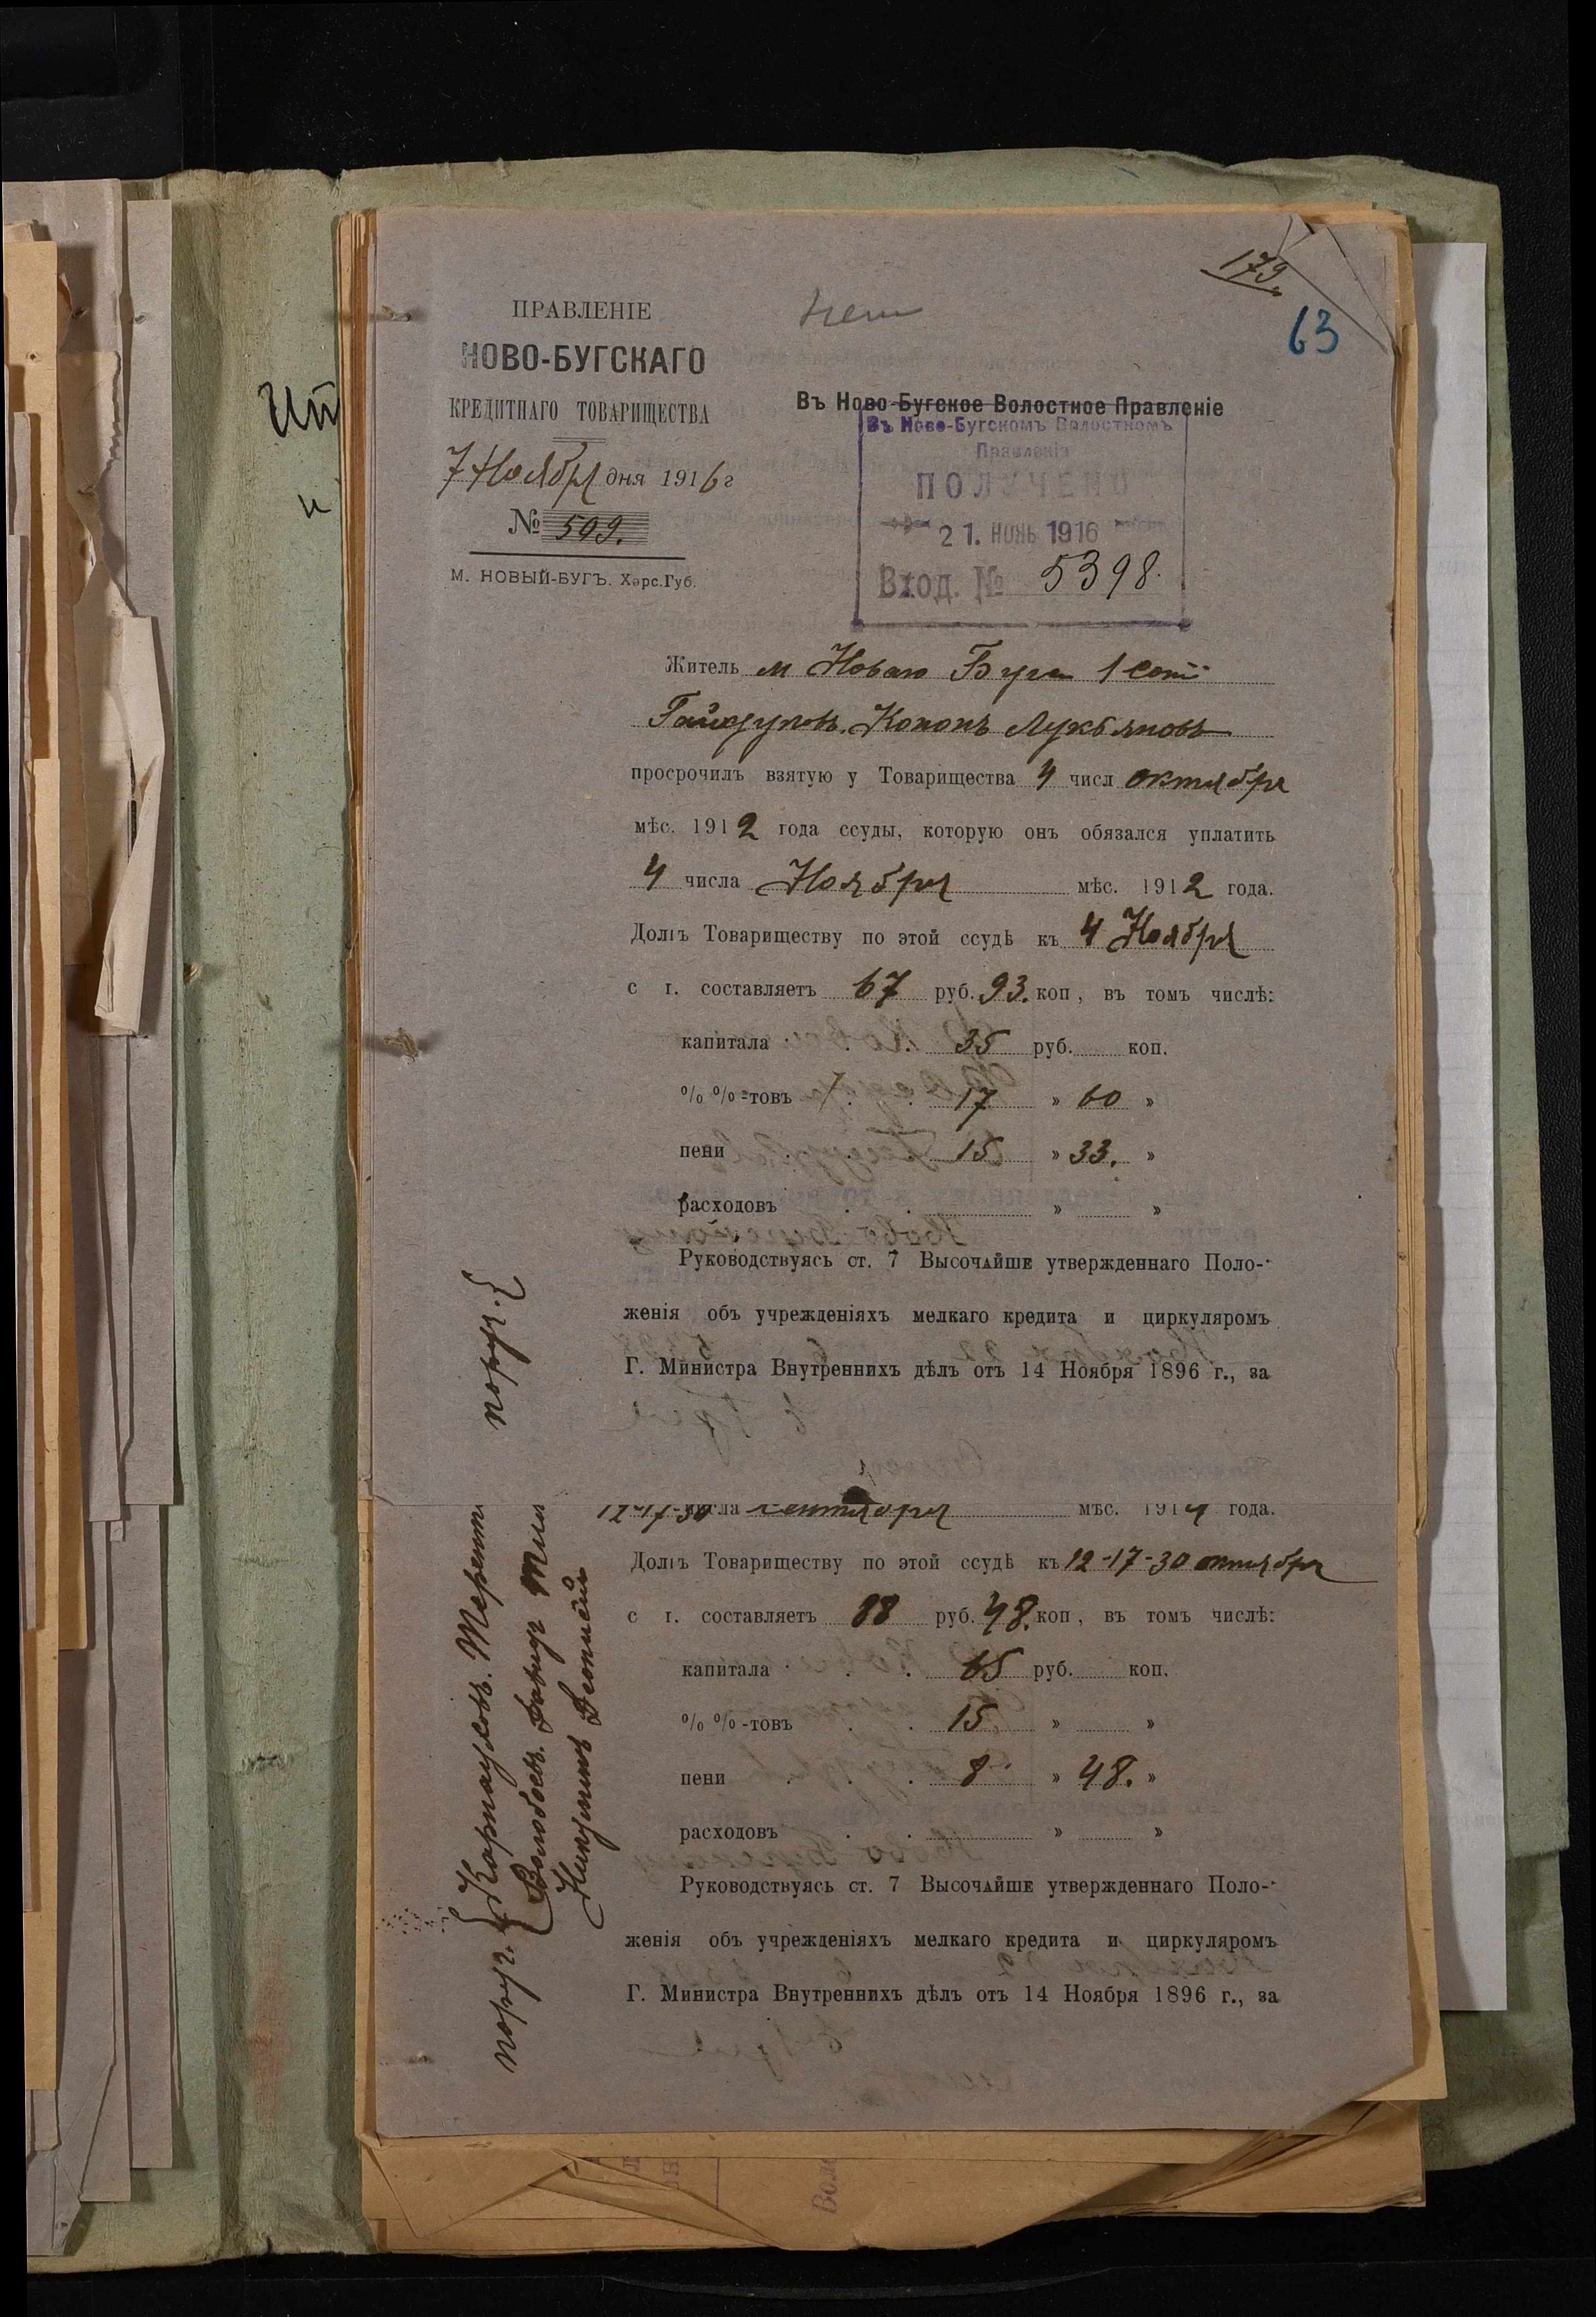 179.
63
нет
ПРАВЛЕНІЕ
НОВО-БУГСКАГО
КРЕДИТНАГО ТОВАРИЩЕСТВА
7 Ноября дня 1916 г
№ 509.
М. НОВЫЙ-БУГЪ. Херс.Губ.
Въ Ново-Бугское Волостное Правленіе
Въ Ново-Бугскомъ Волостномъ
Правленіи
ПОЛУЧЕНО
21. НОЯБ 1916
Вход. № 5398.
Житель м Новаго Буга 1 сот
Гайдуковъ. Кононъ Лукьяновъ
просрочилъ взятую у Товарищества 4 числ октября
мѣс. 1912 года ссуды, которую онъ обязался уплатить
4 числа Ноября мѣс. 1912 года.
Долгъ Товариществу по этой ссудѣ къ 4 Ноября
с г. составляетъ 67 руб. 93. коп, въ томъ числѣ:
капитала 35 руб. коп.
% %-товъ 17 » 60 »
пени 15 » 33. »
расходовъ » »
Руководствуясь ст. 7 ВЫСОЧАЙШЕ утвержденнаго Поло-
женія объ учрежденіяхъ мелкаго кредита и циркуляромъ
Г. Министра Внутреннихъ дѣлъ отъ 14 Ноября 1896 г., за
поруч. {
12-17-30 числа сентября мѣс. 1914 года.
Долгъ Товариществу по этой ссудѣ къ 12-17-30 октября
с г. составляетъ 88 руб. 48. коп, въ томъ числѣ:
капитала 65 руб. коп.
% %-товъ 15. » »
пени 8 » 48. »
расходовъ » »
Руководствуясь ст. 7 ВЫСОЧАЙШЕ утвержденнаго Поло-
женія объ учрежденіяхъ мелкаго кредита и циркуляромъ
Г. Министра Внутреннихъ дѣлъ отъ 14 Ноября 1896 г., за
поруч. {
Картауловъ. Терент
Волобоевъ. Давид
Никитинъ